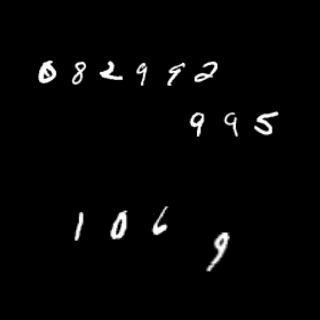 082992
995
1069